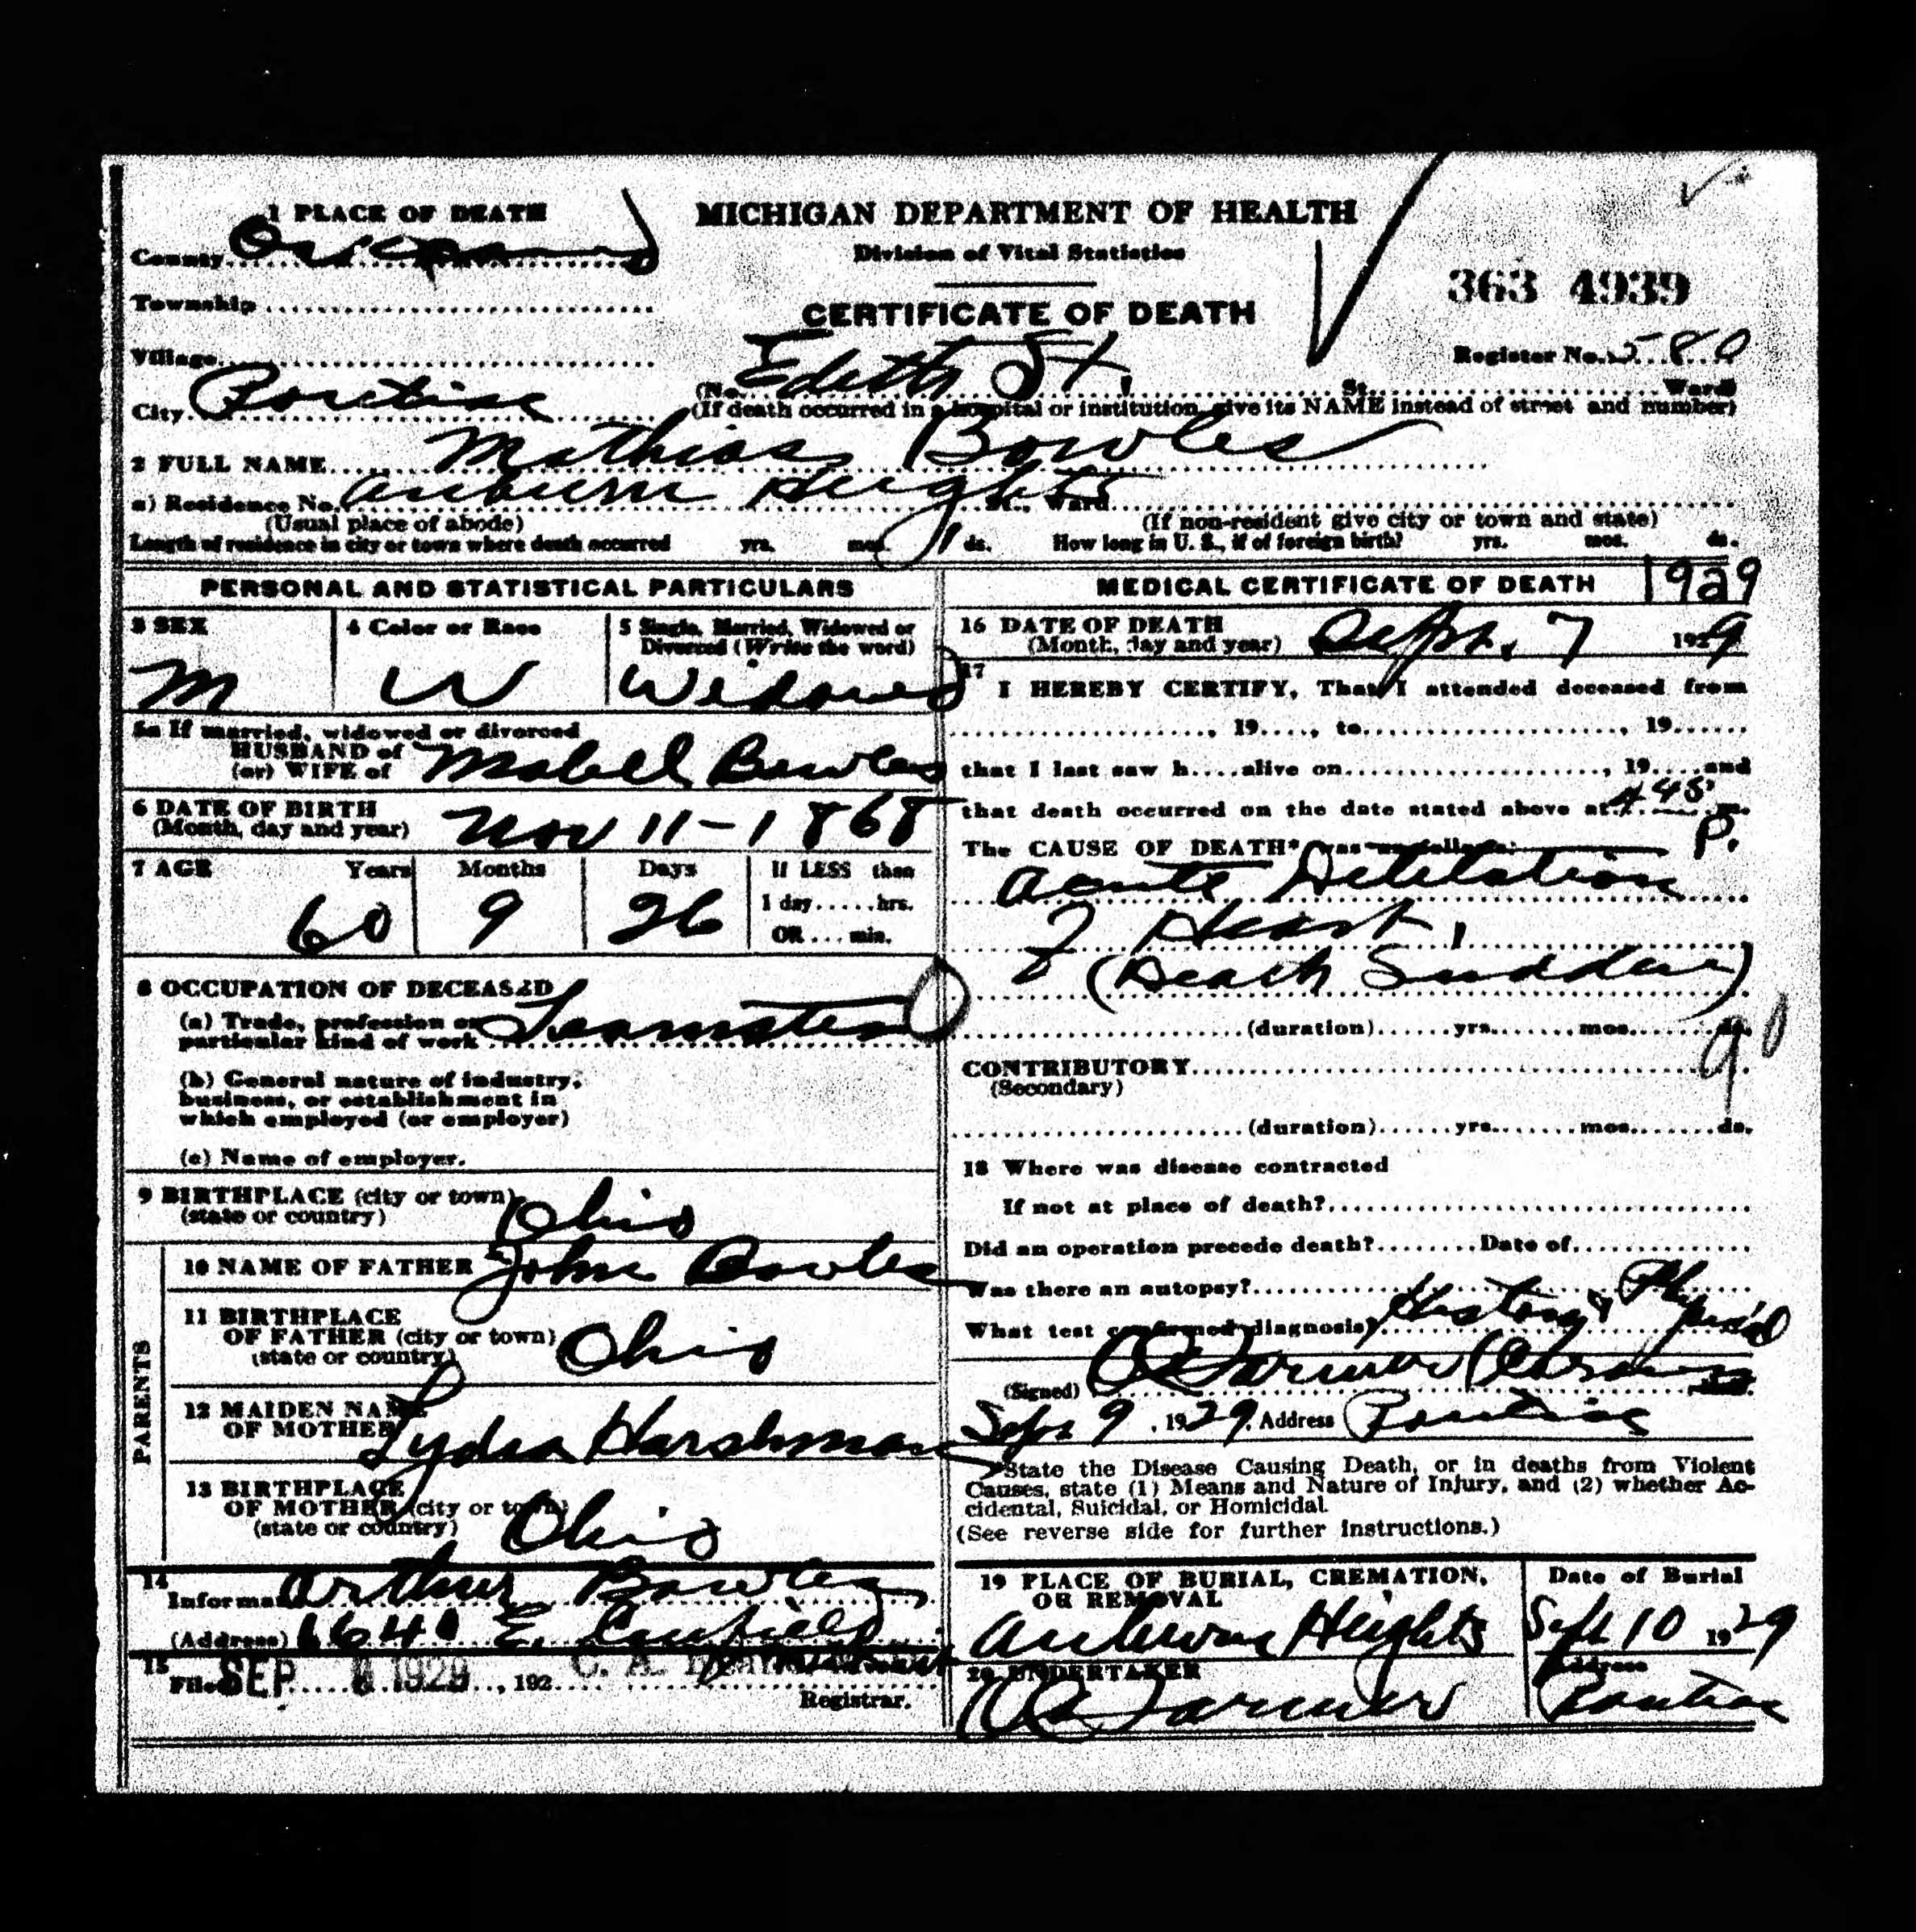 1 PLACE OF DEATH
County Oakland
Township
Village
City Pontiac
MICHIGAN DEPARTMENT OF HEALTH
Division of Vital Statistics
CERTIFICATE OF DEATH
363 4939
Register No. 580
(No. Edith St. St. Ward)
(If death occurred in a hospital or institution, give its NAME instead of street and number)
2 FULL NAME Mathias Bowles
a) Residence No. Auburn Heights St., Ward
(Usual place of abode) (If non-resident give city or town and state)
Length of residence in city or town where death occurred yrs. mos. 1 ds. How long in U. S., if of foreign birth? yrs. mos. ds.
PERSONAL AND STATISTICAL PARTICULARS
3 SEX 4 Color or Race 5 Single, Married, Widowed or
Divorced (Write the word)
M W Widowed
5a If married, widowed or divorced
HUSBAND of
(or) WIFE of Mabell Bowles
6 DATE OF BIRTH
(Month, day and year) Nov 11-1868
7 AGE Years Months Days If LESS than
1 day......hrs.
OR....min.
60 9 26
8 OCCUPATION OF DECEASED
(a) Trade, profession or
particular kind of work Teamster
(b) General nature of industry,
business, or establishment in
which employed (or employer)
(c) Name of employer.
9 BIRTHPLACE (city or town)
(state or country) Ohio
PARENTS
10 NAME OF FATHER John Bowles
11 BIRTHPLACE
OF FATHER (city or town)
(state or country) Ohio
12 MAIDEN NAME
OF MOTHER Lydia Harshman
13 BIRTHPLACE
OF MOTHER (city or town)
(state or country) Ohio
14
Informant Arthur Bowles
(Address) E. Canfield
15
Filed SEP 1929, 192 C. A.
Registrar.
MEDICAL CERTIFICATE OF DEATH 1929
16 DATE OF DEATH
(Month, day and year) Sept. 7 1929
17
I HEREBY CERTIFY, That I attended deceased from
, 19...., to , 19......
that I last saw h....alive on , 19....and
that death occurred on the date stated above at 4 45 m.
P.
The CAUSE OF DEATH* was as follows:
Acute Dilitation
of Heart,
(Death Sudden)
(duration)......yrs.......mos.......ds.
90
CONTRIBUTORY
(Secondary)
(duration)......yrs.......mos.......ds.
18 Where was disease contracted
If not at place of death?
Did an operation precede death?........Date of
Was there an autopsy?
What test confirmed diagnosis? History & Physical
(Signed) Farmer (Coroner)
Sept 9, 1929. Address Pontiac
*State the Disease Causing Death, or in deaths from Violent
Causes, state (1) Means and Nature of Injury, and (2) whether Ac-
cidental, Suicidal, or Homicidal.
(See reverse side for further instructions.)
19 PLACE OF BURIAL, CREMATION,
OR REMOVAL
Auburn Heights
Date of Burial
Sept 10 1929
20 UNDERTAKER
Farmer
Address
Pontiac